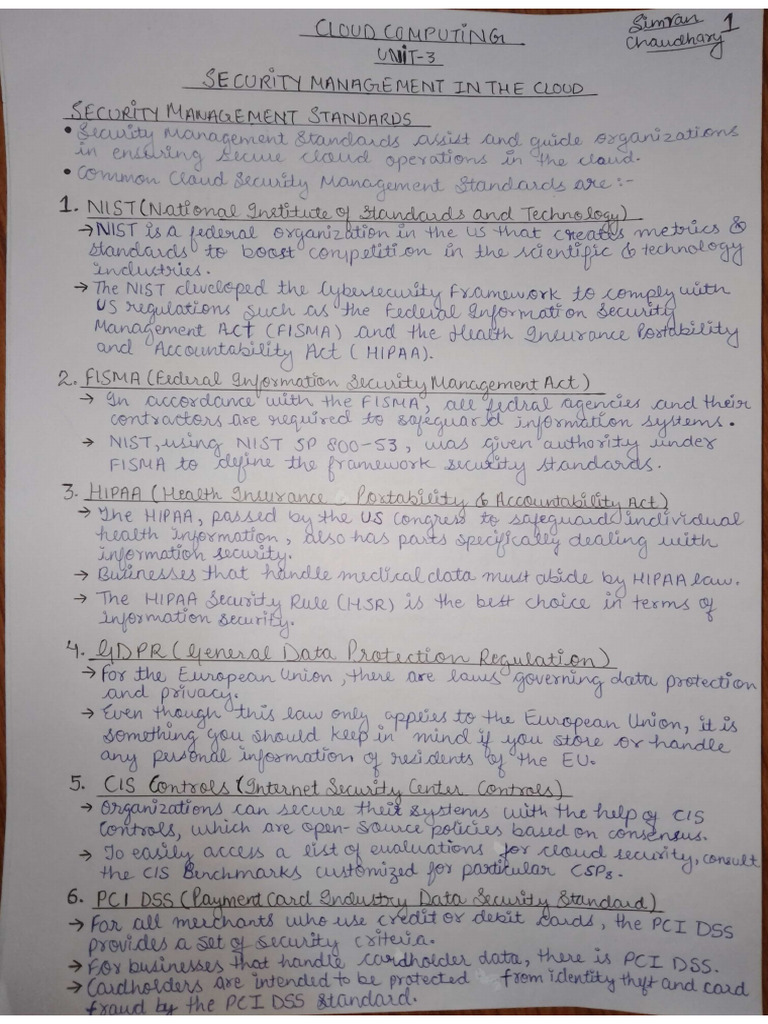 CLOUD COMPUTING
Simran 1
Chaudhary
UNIT-3
SECURITY MANAGEMENT IN THE CLOUD
SECURITY MANAGEMENT STANDARDS
• Security Management Standards assist and guide organizations
in ensuring secure cloud operations in the cloud.
• Common Cloud Security Management Standards are :-
1. NIST (National Institute of Standards and Technology)
→ NIST is a federal organization in the US that creates metrics &
standards to boost competition in the scientific & technology
industries.
→ The NIST developed the Cybersecurity Framework to comply with
US regulations such as the Federal Information Security
Management Act (FISMA) and the Health Insurance Portability
and Accountability Act (HIPAA).
2. FISMA (Federal Information Security Management Act)
→ In accordance with the FISMA, all fedral agencies and their
contractors are required to safeguard information systems.
→ NIST, using NIST SP 800-53, was given authority under
FISMA to define the framework security standards.
3. HIPAA (Health Insurance Portability & Accountability Act)
→ The HIPAA, passed by the US Congress to safeguard individual
health information, also has parts specifically dealing with
information security.
→ Businesses that handle medical data must abide by HIPAA law.
→ The HIPAA Security Rule (HSR) is the best choice in terms of
Information security.
4. GDPR (General Data Protection Regulation)
→ For the European Union, there are laws governing data protection
and privacy.
→ Even though this law only applies to the European Union, it is
something you should keep in mind if you store or handle
any personal information of residents of the EU.
5. CIS Controls (Internet Security Center Controls)
→ Organizations can secure their systems with the help of CIS
Controls, which are open-source policies based on consensus.
→ To easily access a list of evaluations for cloud security, consult
the CIS Benchmarks customized for particular CSPs.
6. PCI DSS (Payment Card Industry Data Security Standard)
→ For all merchants who use credit or debit cards, the PCI DSS
provides a set of security criteria.
→ For businesses that handle cardholder data, there is PCI DSS.
→ Cardholders are intended to be protected from identity theft and card
fraud by the PCI DSS Standard.